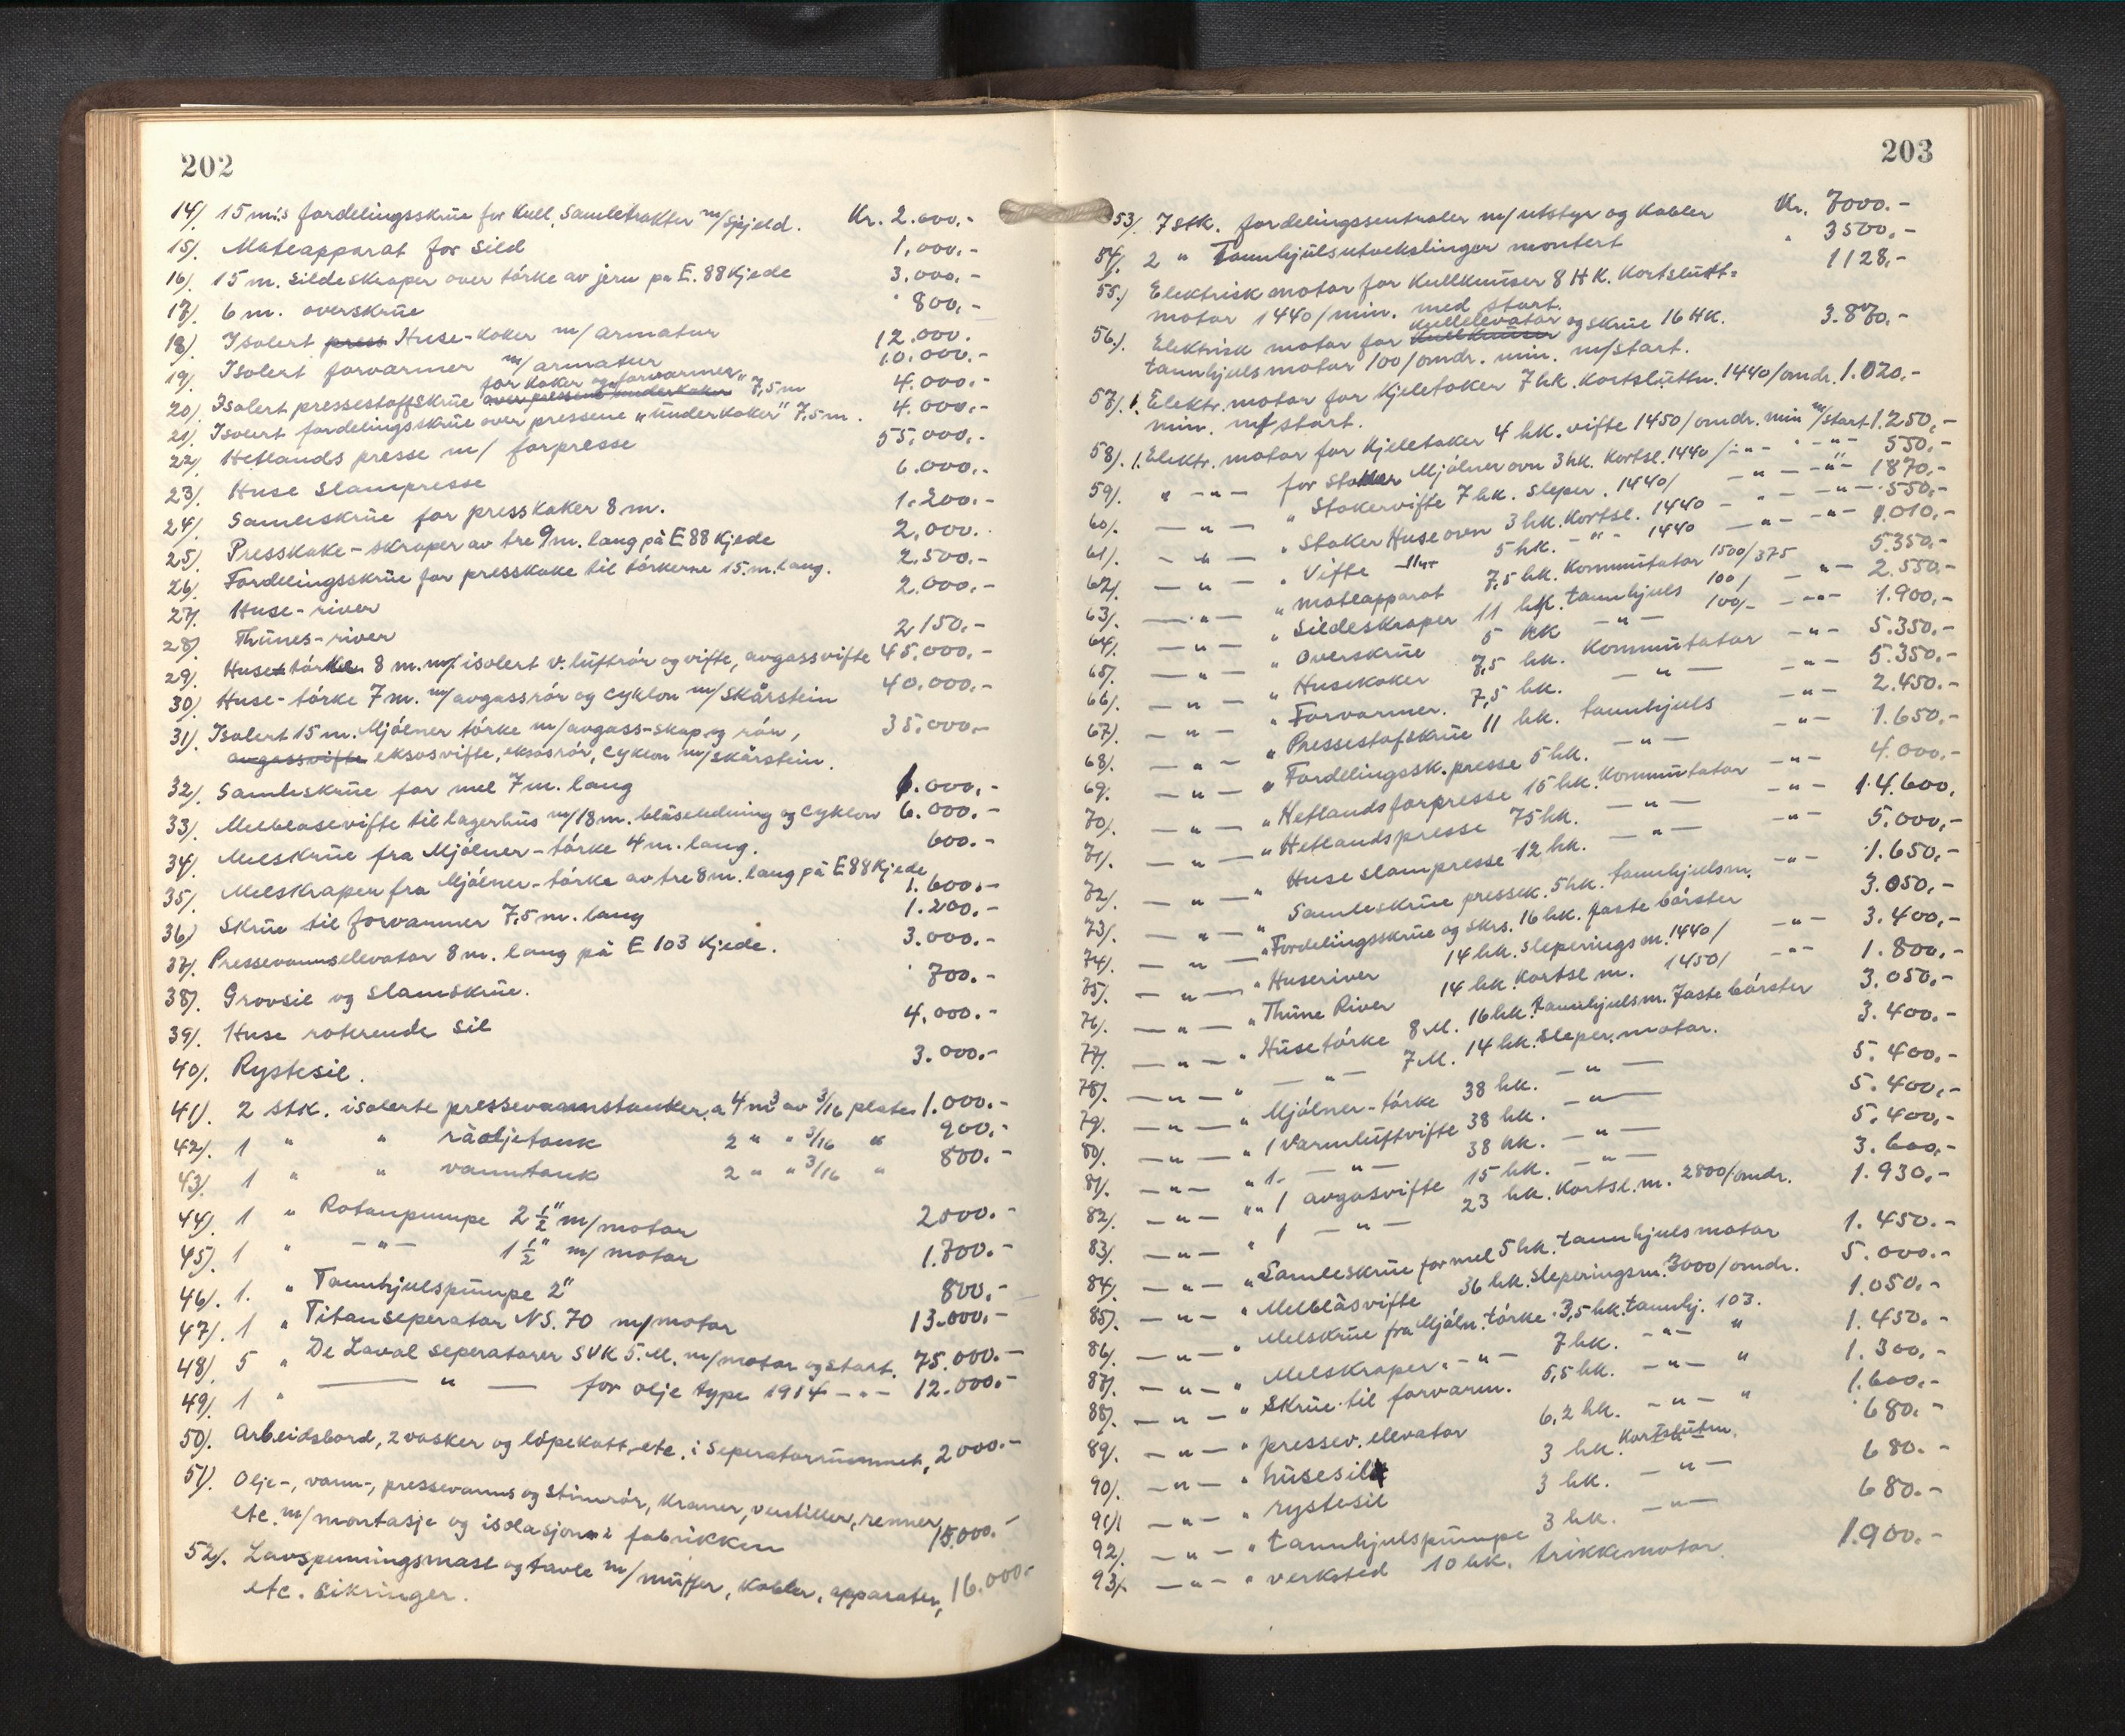 202
14). 15 m's fordelingsskrue for kull, samletrakter m/spjeld. Kr. 2.000.-
15). Mateapparat for sild 1,000.-
16). 15 m. sildeskraper over tørke av jern på E. 88 kjede 3.000.-
17). 6 m. overskrue 800.-
18). Isolert press Huse-koker m/armatur 12.000.
19). Isolert forvarmer m/armatur 10.000.-
for koker og forvarmer
20). Isolert pressestoffskrue over pressene "underkoker" 7,5 m 4.000.-
21). Isolert fordelingsskrue over pressene "underkoker" 7,5 m. 4.000.-
22). Hetlands presse m/ forpresse 55.000.-
23). Huse Slampresse 6.000.-
24). Samleskrue for presskaker 8 m. 1.200.-
25). Presskake-skraper av tre 9 m. lang på E 88 kjede 2.000.
26). Fordelingsskrue for presskake til tørkerne 15. m. lang. 2.500.-
27). Huse-river 2.000.-
28). Thünes-river 2150.-
29). Huse tørke 8 m. m/ isolert v. luftrør og vifte, avgassvifte 45.000.-
30). Huse-tørke 7 m. m/avgassrør og cyklon m/skårstein 40.000.-
31). Isolert 15 m. Mjølner tørke m/avgass-skap og rør, 35.000.-
avgassvifte eksosvifte, eksosrør, cyklon m/skårstein.
32). Samleskrue for mel 7 m. lang 1.000.-
33). Melblåsevifte til lagerhus m/18 m. blåseledning og cyklon 6.000.-
34). Melskrue fra Mjølner-tørke 4 m. lang. 600.-
35). Melskraper fra Mjølner-tørke av tre 8 m. lang på E 88 kjede 1.600.-
36) Skrue til forvarmer 7,5 m. lang 1.200.-
37). Pressevannselevator 8 m. lang på E 103 kjede. 3.000.-
38). Grovsil og slamskrue. 700.-
39). Huse roterende sil 4.000.-
40). Rystesil. 3.000.-
41). 2 stk. isolerte pressevannstanker a 4 m3 av 3/16 plater 1.000.-
42). 1 " " råoljetank 2 " " 3/16 " 900.-
43). 1 " " vanntank 2 " " 3/16 " 800.-
44). 1 " Rotanpumpe 2 1/2" m/motor 2000.-
45). 1 " — " — 1 1/2" m/ motor 1.700.-
46). 1. " Tannhjulspumpe 2" 800.-
47). 1 " Titanseperator NS. 70 m/motor 13.000.-
48). 5 " De Laval seperatorer SVK 5. M. m/motor og start. 75.000.-
49). 1 " — " — for olje type 1914 — " — 12.000.-
50). Arbeidsbord, 2 vasker og løpekatt, etc. i seperatorrummet, 2000.-
51). Olje-, vann-, pressevanns og stimrør, kraner, ventiller, renner,
etc. m/montasje og isolasjon i fabrikken 15.000.-
52). Lavspenningsmast og tavle m/muffer, kabler, apparater, 16.000.-
etc. sikringer.
203
53). 7 stk. fordelingssentraler m/utstyr og kabler Kr. 7000.-
54). 2 " Tannhjulsutvekslinger montert " 3500.-
55.) Elektrisk motor for kullknuser 8 HK. Kortslutt= 1128.-
motor 1440/min. med start.
kullelevator
56.) Elektrisk motor for kullknuser og skrue 16 HK. 3.870.-
tannhjulsmotor 100/omdr. min. m/start.
57). 1. Elektr. motor for kjeletaker 7 hk. kortsluttn. 1440/omdr. 1.020.-
min. m/start.
58). 1. Elektr. motor for kjeletaker 4 hk. vifte 1450/omdr. min m/start 1.250.-
59). " — " — for stoker Mjølner ovn 3 hk. kortsl. 1440/ — " — " — " — 550.-
60). — " — " Stokervifte 7 hk. sleper. 1440/ — " — " — 1870.-
61). — " — " Stoker Huse ovn 3 hk. kortsl. 1440 — " — " — 550.-
62). — " — " Vifte — " — 5 hk. — " — 1440 — " — " — 1.010.-
63). — " — " mateapparat 7,5 hk. kommutator 1500/375 5.350.-
64). — " — " Sildeskraper 11 hk. tannhjuls 100/ — " — 2.550.-
65). — " — " Overskrue 5 hk — " — 100/- — " — 1.900.-
66). — " — " Husekoker 7,5 hk. kommutator — " — 5.350.-
67). — " — " Forvarmer. 7,5 hk. — " — — " — 5.350.-
68). — " — " Pressestofskrue 11 hk. tannhjuls — " — 2.450.-
69). — " — " Fordelingssk. presse 5 hk. — " — — " — 1.650.-
70). — " — " Hetlandsforpresse 15 hk. kommutator — " — 4.000.-
71). — " — " Hetlandspresse 75 hk. — " — — " — 14.600.
72). — " — " Huse slampresse 12 hk. — " — — " — 5.000.-
73). — " — " Samleskrue pressek. 5 hk. tannhjulsm. — " — 1.650.-
74). — " — " Fordelingsskrue og skrs. 16 hk. faste børster 3.050.-
75). — " — " Huseriver 14 hk. sleperings m. 1440/ — " — 3.400.-
76). — " — " Thüne River 14 hk. kortsl m. 1450/ — " — 1.800.-
77). — " — " Huse tørke 8 M. 16 hk. tannhjulsm. faste børster 3.050.-
78). — " — " — " — 7 M. 14 hk. sleper. motor. 3.400.-
79). — " — " Mjølner-tørke 38 hk. — " — 5.400.-
80). — " — " 1 varmluftvifte 38 hk. — " — 5.400.-
81). — " — " 1. — " — 38 hk. — " — 5.400.-
82). — " — " " 1 avgasvifte 15 hk. — " — 3.600.-
83). — " — " 1 — " — 23 hk. kortsl. m. 2800/omdr. 1.930.-
84). — " — " Samleskrue for mel 5 hk. tannhjulsmotor 1.450.-
85). — " — " Melblåsvifte 36 hk. sleperingsm. 3000/omdr. 5.000.-
86). — " — " Melskrue fra Mjøln. tørke. 3,5 hk. tannhj. 103. 1.050.-
87). — " — " Melskraper. — " — 7 hk. — " — " 1.450.-
88). — " — " Skrue til forvarm. 5,5 hk. — " — " 1.300.-
89). — " — " pressev. elevator 6,2 hk. — " — " 1.600.-
90). — " — " husesil 3 hk. kortslutn. 680.-
91). — " — " rystesil 3 hk. — " — 680.-
92). — " — " tannhjulspumpe 3 hk. — " — 680.-
93). — " — " verksted 10 hk. trikkemotor. 1.900.-